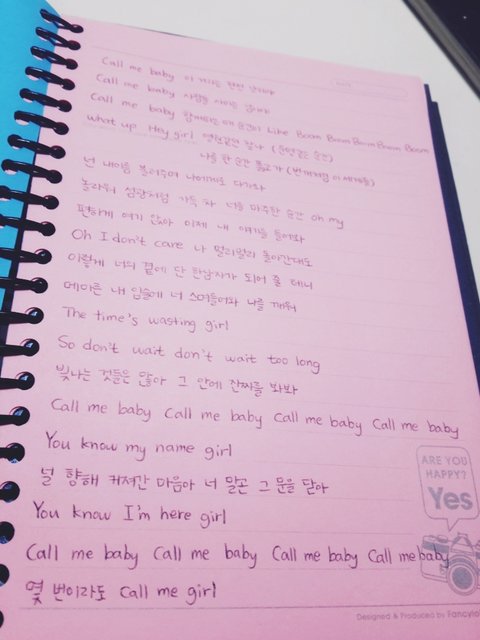 Call me baby 이 거리는 완전 난리야
Call me baby 사람들 사이는 금이야
Call me baby 함께하는 매 순간이 Like Boom Boom Boom Boom Boom
what up Hey girl
나를 한 순간 훔쳐가
넌 내 이름 불러주며 나에게로 다가와
놀라워 섬광처럼 가득 차 너를 마주한 순간 oh my
편하게 여기 앉아 이제 내 얘기를 들어봐
Oh I don't care 나 멀리멀리 돌아간대도
이렇게 너의 곁에 단 한 남자가 되어 줄 테니
메마른 내 입술에 너 스며들어와 나를 깨워
The time's wasting girl
So don't wait don't wait too long
빛나는 것들은 많아 그 안에 진짜를 봐봐
Call me baby Call me baby Call me baby Call me baby
You know my name girl
널 향해 커져간 마음아 너 말곤 그 문을 닫아
You know I'm here girl
Call me baby Call me baby Call me baby Call me baby
몇 번이라도 Call me girl
ARE YOU
HAPPY?
Yes
Designed & Produced by